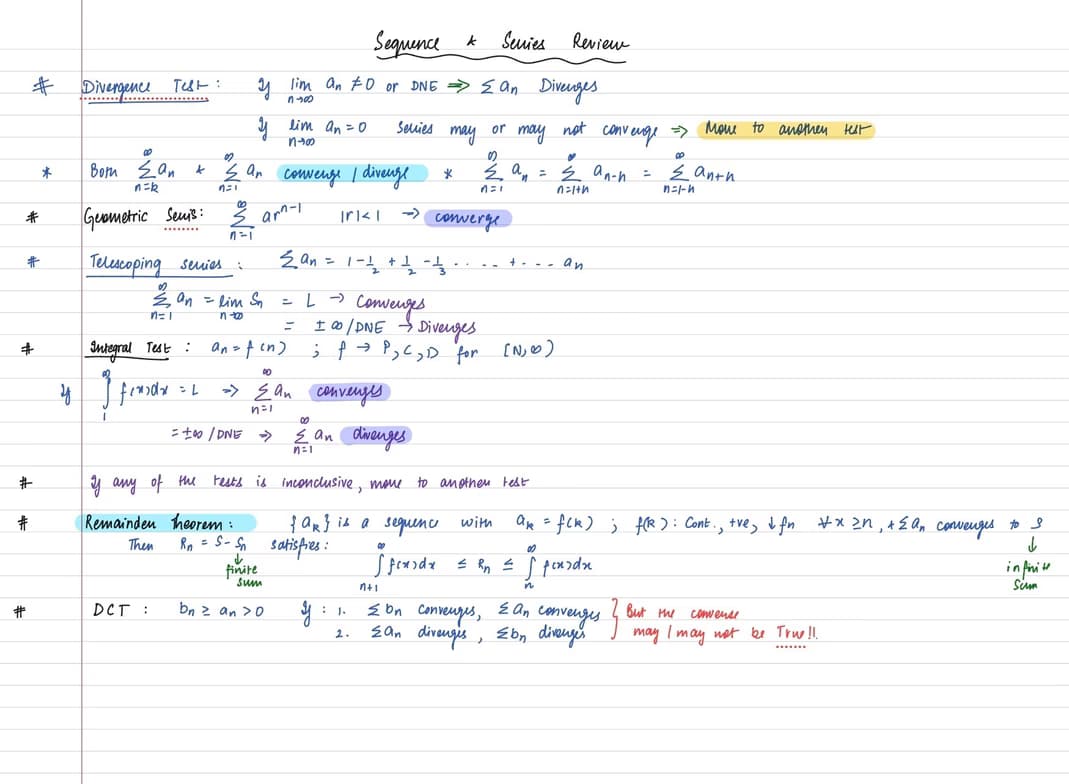 Sequence & Series Review
# Divergence Test : If lim n→∞ an ≠ 0 or DNE ⇒ Σ an Diverges
If lim n→∞ an = 0 Series may or may not converge ⇒ Move to another test
* Both ∞ Σ n=k an & ∞ Σ n=1 an converge / diverge * ∞ Σ n=1 an = ∞ Σ n=1+h an-h = ∞ Σ n=1-h an+h
# Geometric Series: ∞ Σ n=1 ar^n-1 |r| < 1 → converge
# Telescoping series : Σ an = 1 - 1/2 + 1/2 - 1/3 . . . . . . + . - - - an
∞ Σ n=1 an = lim n→∞ Sn = L → Converges
= ± ∞ / DNE → Diverges
# Integral Test : an = f(n) ; f → P, C, D for [N, ∞)
If ∞ ∫ 1 f(x)dx = L ⇒ ∞ Σ n=1 an converges
= ±∞ / DNE ⇒ ∞ Σ n=1 an diverges
# If any of the tests is inconclusive, move to another test
# Remainder theorem : {ak} is a sequence with ak = f(k) ; f(k) : Cont., +ve, ↓ fn ∀ x ≥ n, + Σ an converges to S
Then Rn = S - Sn satisfies :
↓ finite sum
↓ infinite sum
∞ ∫ n+1 f(x)dx ≤ Rn ≤ ∞ ∫ n f(x)dx
# DCT : bn ≥ an > 0 If : 1. Σ bn converges, Σ an converges } But the converse
2. Σ an diverges, Σ bn diverges } may / may not be True!!